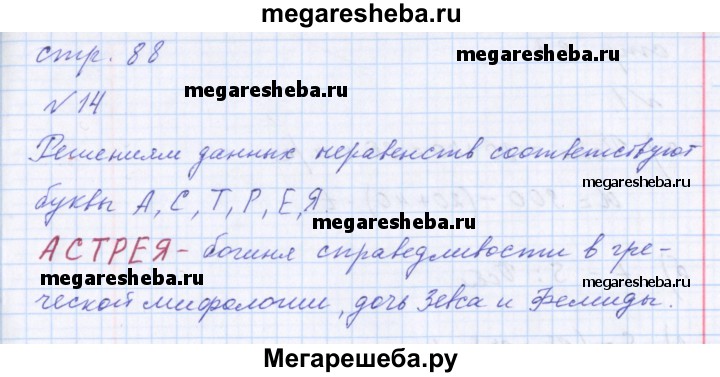 megaresheba.ru
стр. 88
megaresheba.ru
megaresheba.ru
№14
Решениям данных неравенств соответствуют
megaresheba.ru
буквы А, С, Т, Р, Е, Я.
АСТРЕЯ - богиня справедливости в гре-
megaresheba.ru
megaresheba.ru
ческой мифологии, дочь Зевса и Фемиды.
Мегарешеба.ру